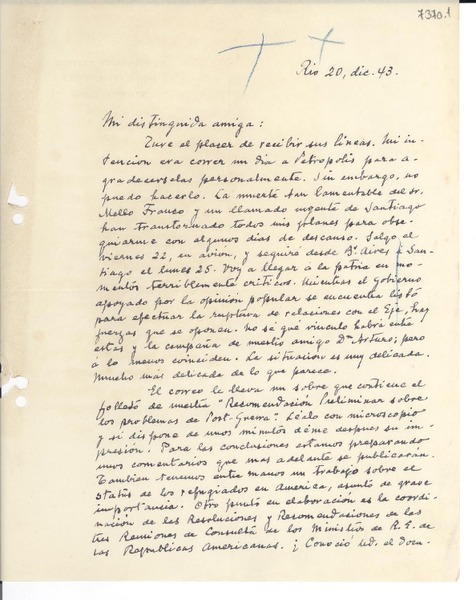 7370.1
Rio 20, dic. 43.
Mi distinguida amiga:
Tuve el placer de recibir sus líneas. Mi in
tencion era correr un día a Petropolis para a
gradecerselas personalmente. Sin embargo, no
puedo hacerlo. La muerte tan lamentable del sr.
Mello Franco y un llamado urgente de Santiago
han transformado todos mis planes para obse
quiarme con algunos días de descanso. Salgo el
viernes 22, en avion, y seguiré desde Bs Aires a San-
tiago el lunes 25. Voy a llegar a la patria en mo-
mentos terriblemente críticos. Mientras el Gobierno
apoyado por la opinión popular se encuentra listo
para efectuar la ruptura de relaciones con el Eje, hay
fuerzas que se oponen. No sé que vínculo habrá entre
estas y la campaña de nuestro amigo Dn Arturo; pero
a lo menos coinciden. La situación es muy delicada.
Mucho más delicada de lo que parece.
El correo le lleva un sobre que contiene el
folleto de nuestra "Recomendación Preliminar sobre
los problemas de Post-Guerra". Léalo con microscopio
y si dispone de unos minutos déme despues su im-
presión. Para las conclusiones estamos preparando
unos comentarios que mas adelante se publicarán.
Tambien tenemos entre manos un trabajo sobre el
status de los refugiados en America, asunto de grave
importancia. Otro punto en elaboración es la coordi-
nación de las Resoluciones y Recomendaciones de las
tres Reuniones de Consulta de los Ministros de R.E. de
las Republicas Americanas. ¿Conoció Ud. el docu-